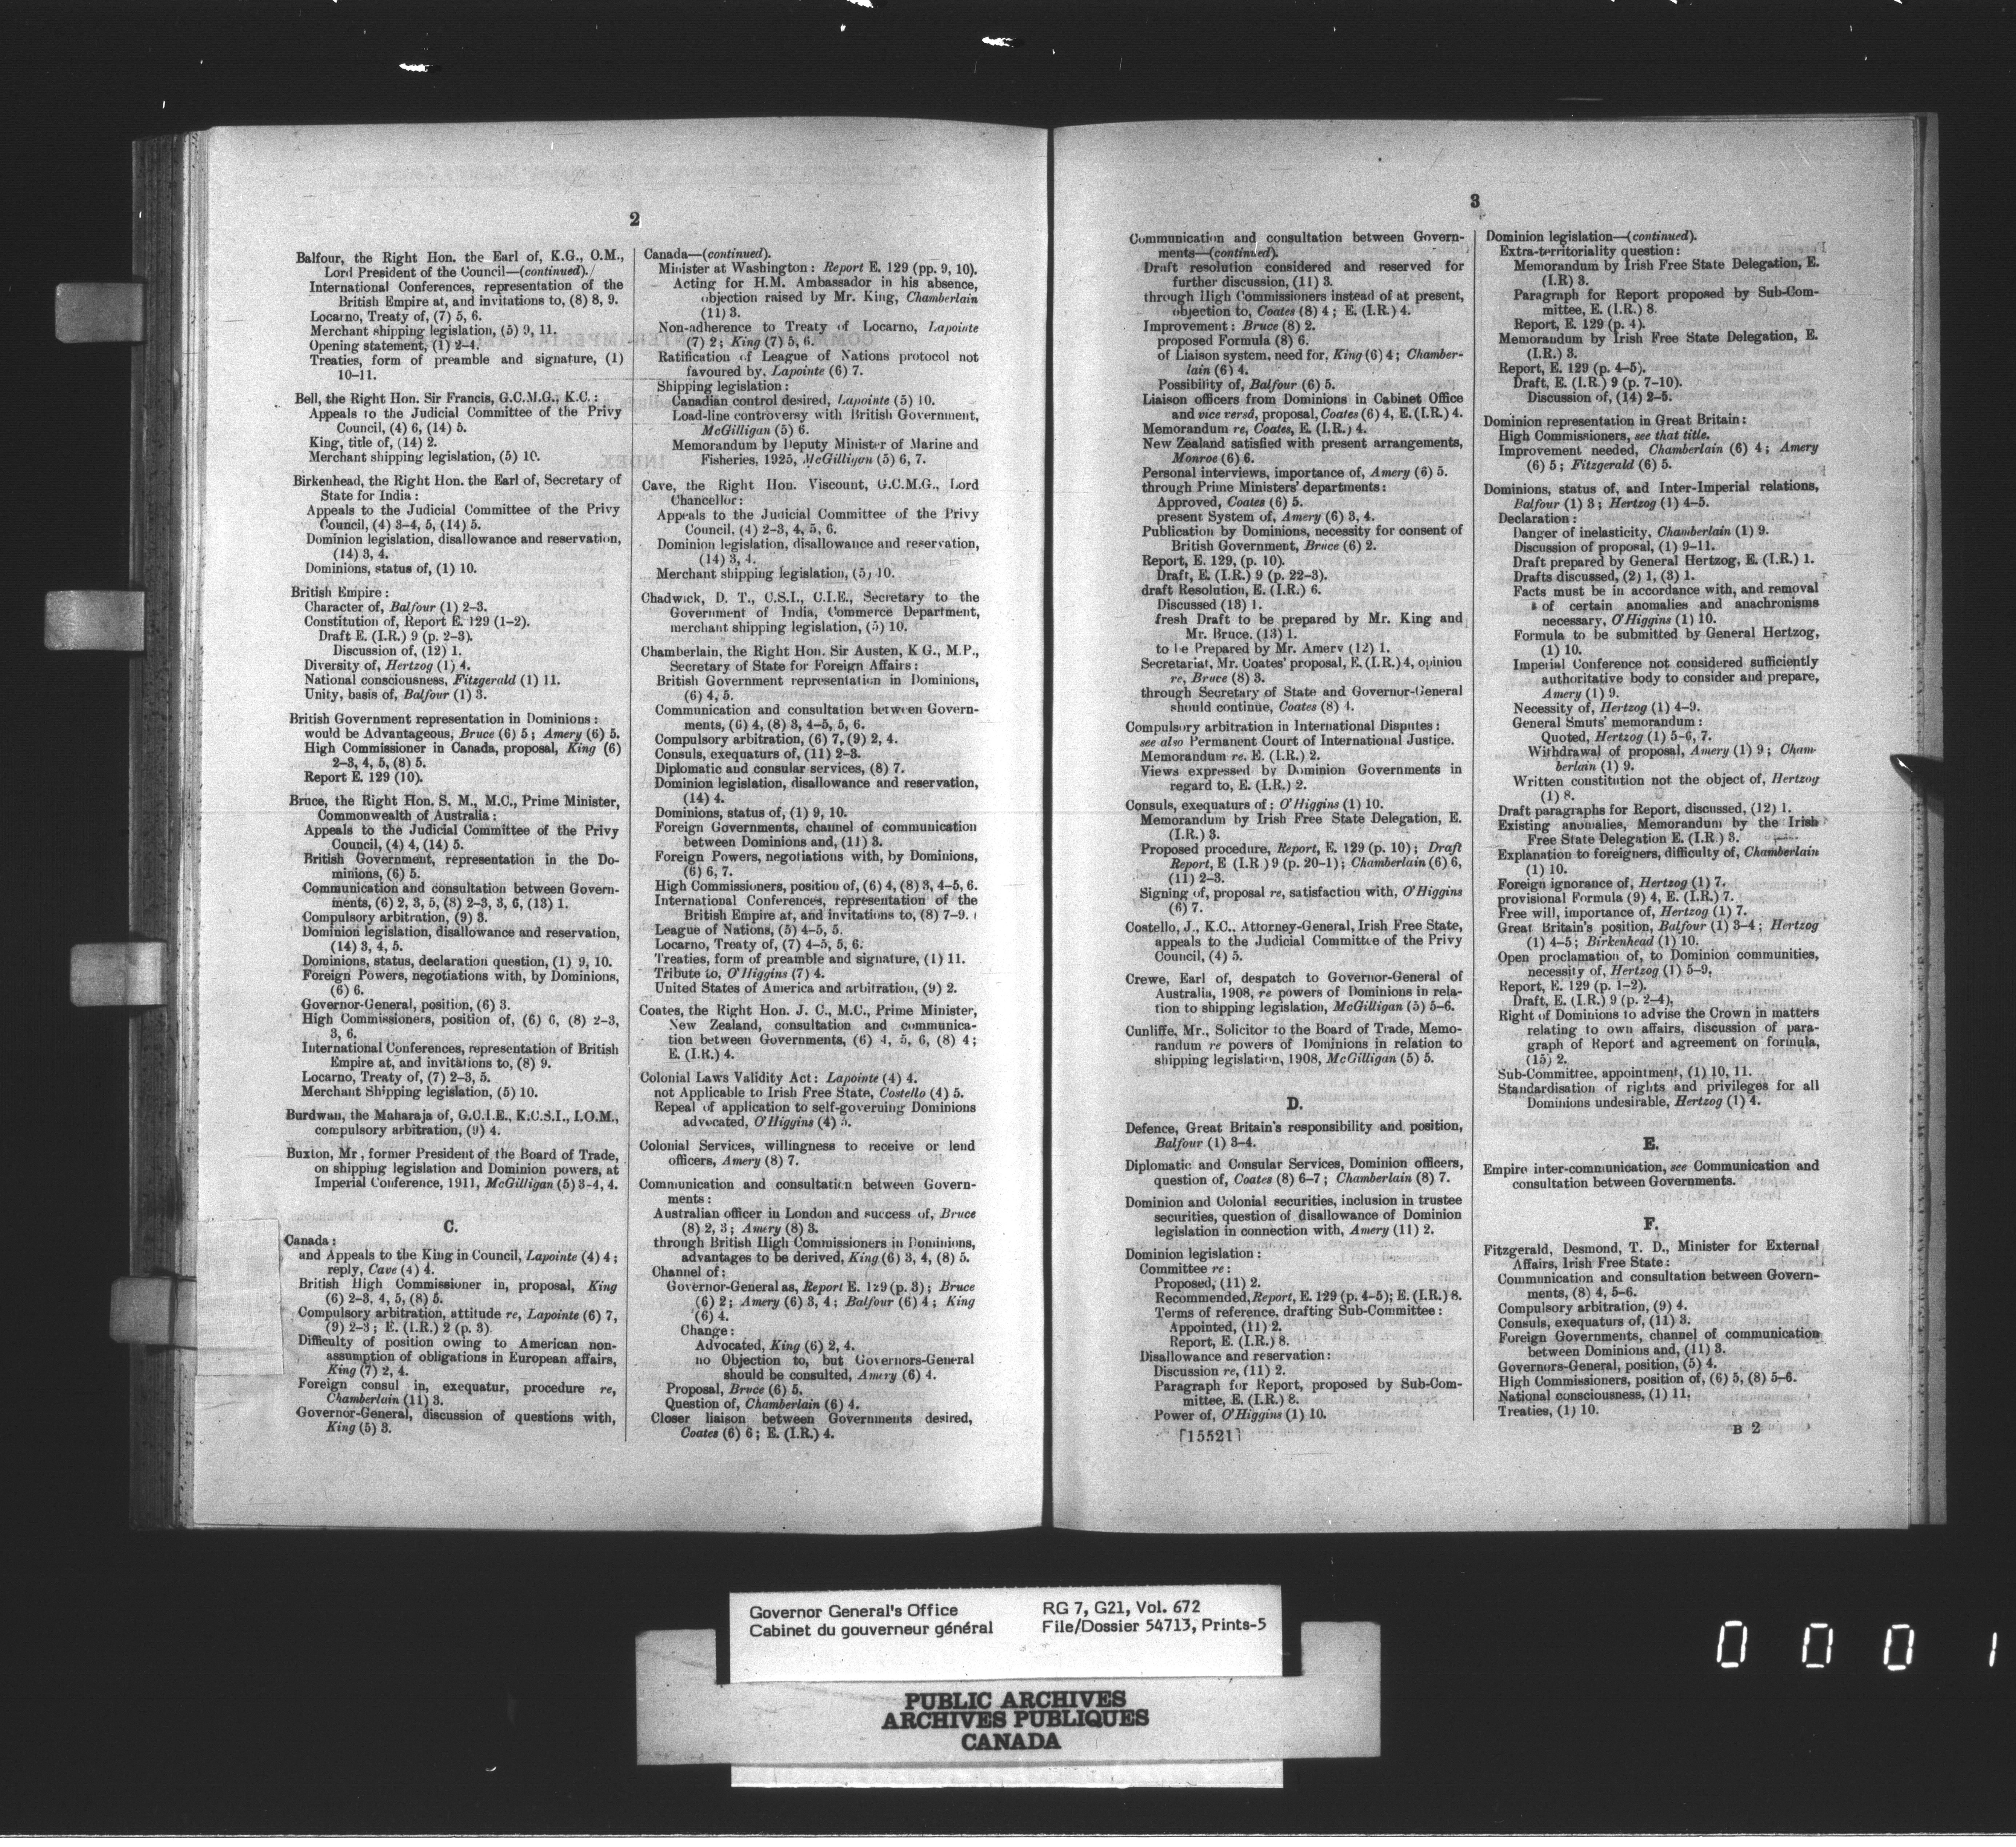 2
Balfour, the Right Hon. the Earl of, K.G., O.M.,
Lord President of the Council—(continued).
International Conferences, representation of the
British Empire at, and invitations to, (8) 8, 9.
Locarno, Treaty of, (7) 5, 6.
Merchant shipping legislation, (5) 9, 11.
Opening statement, (1) 2–4.
Treaties, form of preamble and signature, (1)
10–11.
Bell, the Right Hon. Sir Francis, G.C.M.G., K.C.:
Appeals to the Judicial Committee of the Privy
Council, (4) 6, (14) 5.
King, title of, (14) 2.
Merchant shipping legislation, (5) 10.
Birkenhead, the Right Hon. the Earl of, Secretary of
State for India:
Appeals to the Judicial Committee of the Privy
Council, (4) 3–4, 5, (14) 5.
Dominion legislation, disallowance and reservation,
(14) 3, 4.
Dominions, status of, (1) 10.
British Empire:
Character of, Balfour (1) 2–3.
Constitution of, Report E. 129 (1–2).
Draft E. (I.R.) 9 (p. 2–3).
Discussion of, (12) 1.
Diversity of, Hertzog (1) 4.
National consciousness, Fitzgerald (1) 11.
Unity, basis of, Balfour (1) 3.
British Government representation in Dominions:
would be Advantageous, Bruce (6) 5; Amery (6) 5.
High Commissioner in Canada, proposal, King (6)
2–3, 4, 5, (8) 5.
Report E. 129 (10).
Bruce, the Right Hon. S. M., M.C., Prime Minister,
Commonwealth of Australia:
Appeals to the Judicial Committee of the Privy
Council, (4) 4, (14) 5.
British Government, representation in the Do-
minions, (6) 5.
Communication and consultation between Govern-
ments, (6) 2, 3, 5, (8) 2–3, 3, 6, (13) 1.
Compulsory arbitration, (9) 3.
Dominion legislation, disallowance and reservation,
(14) 3, 4, 5.
Dominions, status, declaration question, (1) 9, 10.
Foreign Powers, negotiations with, by Dominions,
(6) 6.
Governor-General, position, (6) 3.
High Commissioners, position of, (6) 6, (8) 2–3,
3, 6.
International Conferences, representation of British
Empire at, and invitations to, (8) 9.
Locarno, Treaty of, (7) 2–3, 5.
Merchant Shipping legislation, (5) 10.
Burdwan, the Maharaja of, G.C.I.E., K.C.S.I., I.O.M.,
compulsory arbitration, (9) 4.
Buxton, Mr, former President of the Board of Trade,
on shipping legislation and Dominion powers, at
Imperial Conference, 1911, McGilligan (5) 3–4, 4.
C.
Canada:
and Appeals to the King in Council, Lapointe (4) 4;
reply, Cave (4) 4.
British High Commissioner in, proposal, King
(6) 2–3, 4, 5, (8) 5.
Compulsory arbitration, attitude re, Lapointe (6) 7,
(9) 2–3; E. (I.R.) 2 (p. 3).
Difficulty of position owing to American non-
assumption of obligations in European affairs,
King (7) 2, 4.
Foreign consul in, exequatur, procedure re,
Chamberlain (11) 3.
Governor-General, discussion of questions with,
King (5) 3.
Canada—(continued).
Minister at Washington: Report E. 129 (pp. 9, 10).
Acting for H.M. Ambassador in his absence,
objection raised by Mr. King, Chamberlain
(11) 3.
Non-adherence to Treaty of Locarno, Lapointe
(7) 2; King (7) 5, 6.
Ratification of League of Nations protocol not
favoured by, Lapointe (6) 7.
Shipping legislation:
Canadian control desired, Lapointe (5) 10.
Load-line controversy with British Government,
McGilligan (5) 6.
Memorandum by Deputy Minister of Marine and
Fisheries, 1925, McGilligan (5) 6, 7.
Cave, the Right Hon. Viscount, G.C.M.G., Lord
Chancellor:
Appeals to the Judicial Committee of the Privy
Council, (4) 2–3, 4, 5, 6.
Dominion legislation, disallowance and reservation,
(14) 3, 4.
Merchant shipping legislation, (5) 10.
Chadwick, D. T., C.S.I., C.I.E., Secretary to the
Government of India, Commerce Department,
merchant shipping legislation, (5) 10.
Chamberlain, the Right Hon. Sir Austen, K G., M.P.,
Secretary of State for Foreign Affairs:
British Government representation in Dominions,
(6) 4, 5.
Communication and consultation between Govern-
ments, (6) 4, (8) 3, 4–5, 5, 6.
Compulsory arbitration, (6) 7, (9) 2, 4.
Consuls, exequaturs of, (11) 2–3.
Diplomatic and consular services, (8) 7.
Dominion legislation, disallowance and reservation,
(14) 4.
Dominions, status of, (1) 9, 10.
Foreign Governments, channel of communication
between Dominions and, (11) 3.
Foreign Powers, negotiations with, by Dominions,
(6) 6, 7.
High Commissioners, position of, (6) 4, (8) 3, 4–5, 6.
International Conferences, representation of the
British Empire at, and invitations to, (8) 7–9.
League of Nations, (5) 4–5, 5.
Locarno, Treaty of, (7) 4–5, 5, 6.
Treaties, form of preamble and signature, (1) 11.
Tribute to, O'Higgins (7) 4.
United States of America and arbitration, (9) 2.
Coates, the Right Hon. J. C., M.C., Prime Minister,
New Zealand, consultation and communica-
tion between Governments, (6) 4, 5, 6, (8) 4;
E. (I.R.) 4.
Colonial Laws Validity Act: Lapointe (4) 4.
not Applicable to Irish Free State, Costello (4) 5.
Repeal of application to self-governing Dominions
advocated, O'Higgins (4) 5.
Colonial Services, willingness to receive or lend
officers, Amery (8) 7.
Communication and consultation between Govern-
ments:
Australian officer in London and success of, Bruce
(8) 2, 3; Amery (8) 3.
through British High Commissioners in Dominions,
advantages to be derived, King (6) 3, 4, (8) 5.
Channel of:
Governor-General as, Report E. 129 (p. 3); Bruce
(6) 2; Amery (6) 3, 4; Balfour (6) 4; King
(6) 4.
Change:
Advocated, King (6) 2, 4.
no Objection to, but Governors-General
should be consulted, Amery (6) 4.
Proposal, Bruce (6) 5.
Question of, Chamberlain (6) 4.
Closer liaison between Governments desired,
Coates (6) 6; E. (I.R.) 4.
3
Communication and consultation between Govern-
ments—(continued).
Draft resolution considered and reserved for
further discussion, (11) 3.
through High Commissioners instead of at present,
objection to, Coates (8) 4; E. (I.R.) 4.
Improvement: Bruce (8) 2.
proposed Formula (8) 6.
of Liaison system, need for, King (6) 4; Chamber-
lain (6) 4.
Possibility of, Balfour (6) 5.
Liaison officers from Dominions in Cabinet Office
and vice versâ, proposal, Coates (6) 4, E. (I.R.) 4.
Memorandum re, Coates, E. (I.R.) 4.
New Zealand satisfied with present arrangements,
Monroe (6) 6.
Personal interviews, importance of, Amery (6) 5.
through Prime Ministers' departments:
Approved, Coates (6) 5.
present System of, Amery (6) 3, 4.
Publication by Dominions, necessity for consent of
British Government, Bruce (6) 2.
Report, E. 129, (p. 10).
Draft, E. (I.R.) 9 (p. 22–3).
draft Resolution, E. (I.R.) 6.
Discussed (13) 1.
fresh Draft to be prepared by Mr. King and
Mr. Bruce. (13) 1.
to be Prepared by Mr. Amery (12) 1.
Secretariat, Mr. Coates' proposal, E. (I.R.) 4, opinion
re, Bruce (8) 3.
through Secretary of State and Governor-General
should continue, Coates (8) 4.
Compulsory arbitration in International Disputes:
see also Permanent Court of International Justice.
Memorandum re. E. (I.R.) 2.
Views expressed by Dominion Governments in
regard to, E. (I.R.) 2.
Consuls, exequaturs of: O'Higgins (1) 10.
Memorandum by Irish Free State Delegation, E.
(I.R.) 3.
Proposed procedure, Report, E. 129 (p. 10); Draft
Report, E (I.R ) 9 (p. 20–1); Chamberlain (6) 6,
(11) 2–3.
Signing of, proposal re, satisfaction with, O'Higgins
(6) 7.
Costello, J., K.C., Attorney-General, Irish Free State,
appeals to the Judicial Committee of the Privy
Council, (4) 5.
Crewe, Earl of, despatch to Governor-General of
Australia, 1908, re powers of Dominions in rela-
tion to shipping legislation, McGilligan (5) 5–6.
Cunliffe, Mr., Solicitor to the Board of Trade, Memo-
randum re powers of Dominions in relation to
shipping legislation, 1908, McGilligan (5) 5.
D.
Defence, Great Britain's responsibility and position,
Balfour (1) 3–4.
Diplomatic and Consular Services, Dominion officers,
question of, Coates (8) 6–7; Chamberlain (8) 7.
Dominion and Colonial securities, inclusion in trustee
securities, question of disallowance of Dominion
legislation in connection with, Amery (11) 2.
Dominion legislation:
Committee re:
Proposed, (11) 2.
Recommended, Report, E. 129 (p. 4–5); E. (I.R.) 8.
Terms of reference, drafting Sub-Committee:
Appointed, (11) 2.
Report, E. (I.R.) 8.
Disallowance and reservation:
Discussion re, (11) 2.
Paragraph for Report, proposed by Sub-Com-
mittee, E. (I.R.) 8.
Power of, O'Higgins (1) 10.
[15521]
Dominion legislation—(continued).
Extra-territoriality question:
Memorandum by Irish Free State Delegation, E.
(I.R) 3.
Paragraph for Report proposed by Sub-Com-
mittee, E. (I.R.) 8.
Report, E. 129 (p. 4).
Memorandum by Irish Free State Delegation, E.
(I.R.) 3.
Report, E. 129 (p. 4–5).
Draft, E. (I.R.) 9 (p. 7–10).
Discussion of, (14) 2–5.
Dominion representation in Great Britain:
High Commissioners, see that title.
Improvement needed, Chamberlain (6) 4; Amery
(6) 5; Fitzgerald (6) 5.
Dominions, status of, and Inter-Imperial relations,
Balfour (1) 3; Hertzog (1) 4–5.
Declaration:
Danger of inelasticity, Chamberlain (1) 9.
Discussion of proposal, (1) 9–11.
Draft prepared by General Hertzog, E. (I.R.) 1.
Drafts discussed, (2) 1, (3) 1.
Facts must be in accordance with, and removal
of certain anomalies and anachronisms
necessary, O'Higgins (1) 10.
Formula to be submitted by General Hertzog,
(1) 10.
Imperial Conference not considered sufficiently
authoritative body to consider and prepare,
Amery (1) 9.
Necessity of, Hertzog (1) 4–9.
General Smuts' memorandum:
Quoted, Hertzog (1) 5–6, 7.
Withdrawal of proposal, Amery (1) 9; Cham-
berlain (1) 9.
Written constitution not the object of, Hertzog
(1) 8.
Draft paragraphs for Report, discussed, (12) 1.
Existing anomalies, Memorandum by the Irish
Free State Delegation E. (I.R.) 3.
Explanation to foreigners, difficulty of, Chamberlain
(1) 10.
Foreign ignorance of, Hertzog (1) 7.
provisional Formula (9) 4, E. (I.R.) 7.
Free will, importance of, Hertzog (1) 7.
Great Britain's position, Balfour (1) 3–4; Hertzog
(1) 4–5; Birkenhead (1) 10.
Open proclamation of, to Dominion communities,
necessity of, Hertzog (1) 5–9.
Report, E. 129 (p. 1–2).
Draft, E. (I.R.) 9 (p. 2–4),
Right of Dominions to advise the Crown in matters
relating to own affairs, discussion of para-
graph of Report and agreement on formula,
(15) 2.
Sub-Committee, appointment, (1) 10, 11.
Standardisation of rights and privileges for all
Dominions undesirable, Hertzog (1) 4.
E.
Empire inter-communication, see Communication and
consultation between Governments.
F.
Fitzgerald, Desmond, T. D., Minister for External
Affairs, Irish Free State:
Communication and consultation between Govern-
ments, (8) 4, 5–6.
Compulsory arbitration, (9) 4.
Consuls, exequaturs of, (11) 3.
Foreign Governments, channel of communication
between Dominions and, (11) 3.
Governors-General, position, (5) 4.
High Commissioners, position of, (6) 5, (8) 5–6.
National consciousness, (1) 11.
Treaties, (1) 10.
B 2
Governor General's Office
Cabinet du gouverneur général
RG 7, G21, Vol. 672
File/Dossier 54713, Prints-5
PUBLIC ARCHIVES
ARCHIVES PUBLIQUES
CANADA
0 0 0 1